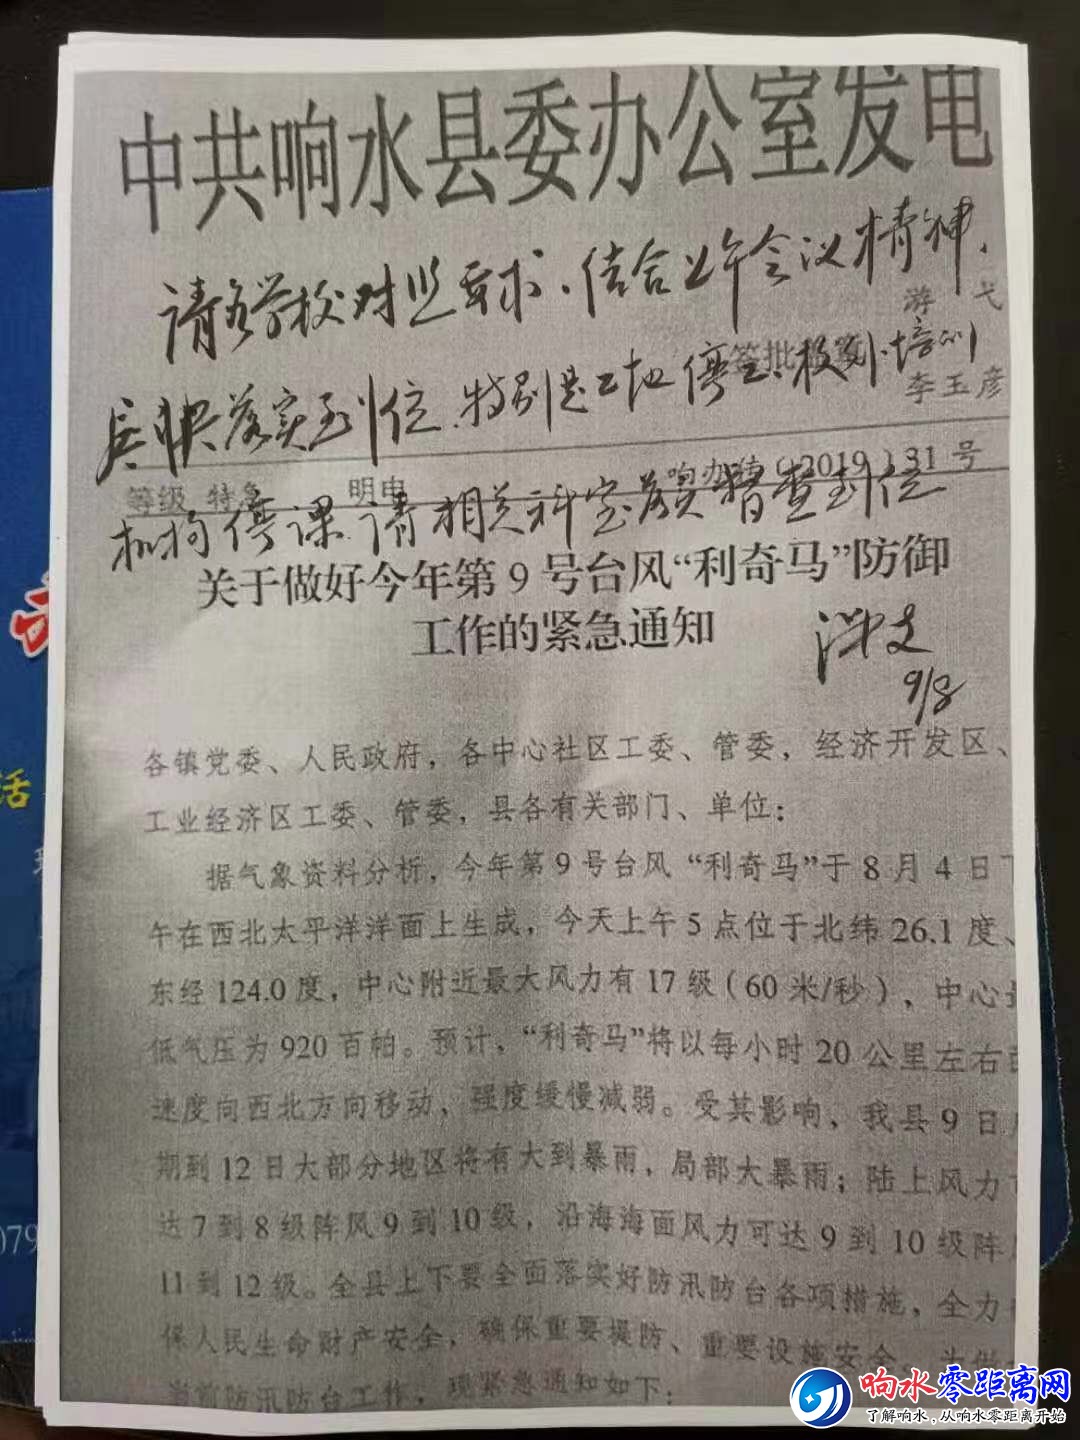 中共响水县委办公室发电
请各学校对照要求、结合上午会议精神、
游 弋
签批
尽快落实到位、特别是工地停工、校外培训
李玉彦
等级 特急 明电 响办传〔2019〕31 号
机构停课 请相关科室 督查到位
关于做好今年第 9 号台风“利奇马”防御
工作的紧急通知
9/8
各镇党委、人民政府，各中心社区工委、管委，经济开发区、
工业经济区工委、管委，县各有关部门、单位：
据气象资料分析，今年第 9 号台风“利奇马”于 8 月 4 日下
午在西北太平洋洋面上生成，今天上午 5 点位于北纬 26.1 度、
东经 124.0 度，中心附近最大风力有 17 级（60 米/秒），中心最
低气压为 920 百帕。预计，“利奇马”将以每小时 20 公里左右的
速度向西北方向移动，强度缓慢减弱。受其影响，我县 9 日后
期到 12 日大部分地区将有大到暴雨，局部大暴雨；陆上风力可
达 7 到 8 级阵风 9 到 10 级，沿海海面风力可达 9 到 10 级阵风
11 到 12 级。全县上下要全面落实好防汛防台各项措施，全力
保人民生命财产安全，确保重要堤防、重要设施安全。为做
当前防汛防台工作，现紧急通知如下：
响水零距离网
了解响水，从响水零距离开始
活
079